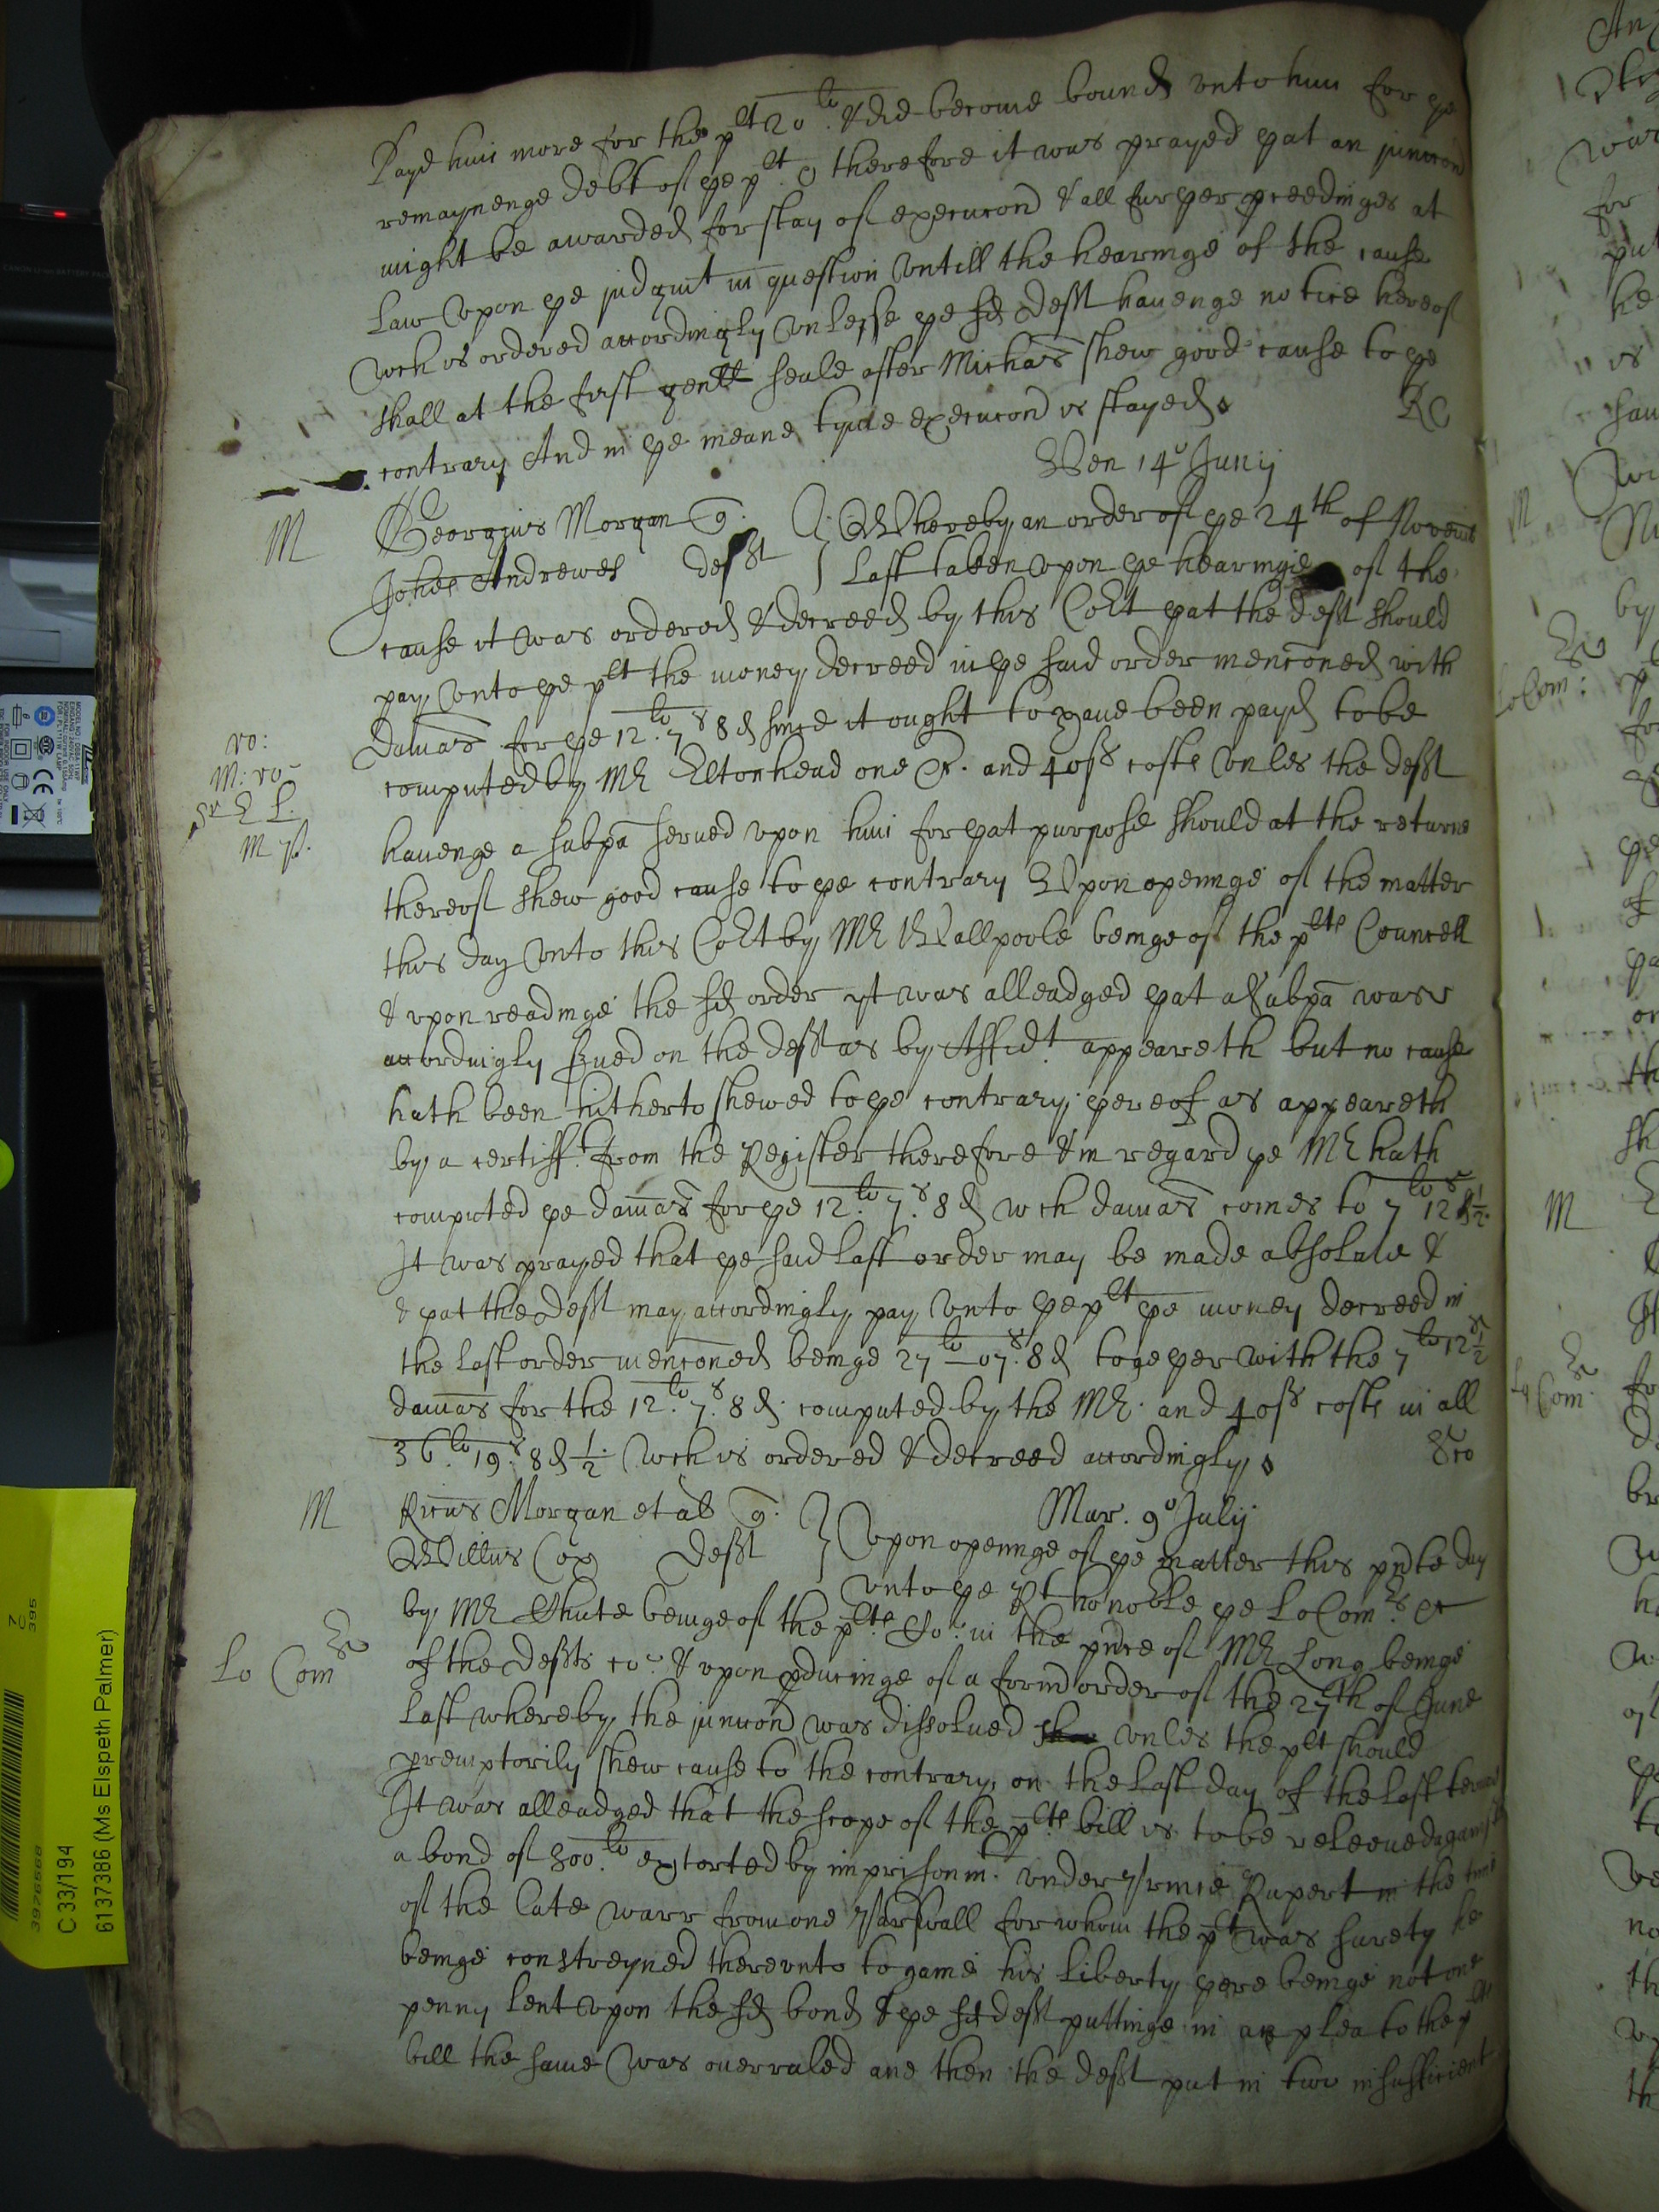 Payd him more for the plt 20li. & did become bound unto him for ye
remaynenge debt of ye plt. therefore it was prayed yat an iuncon
might be awarded for stay of execucond & all furyer pceedinges at
Law vpon ye judgmt in question vntill the hearinge of the cause
Wch is ordered accordingly vnlesse ye sd Deft hauenge notice hereof
shall at the first genll seale after Michas shew good cause to ye
contrary And in ye meane tyme execucond is stayed.
Wen 14o Junij
M Georgius Morgan q. Whereby an order of ye 24th of Novemb
Johes Andrewes deft last taken vpon ye hearinge of the
cause it was ordered & decreed by this Cort yat the deft should
pay vnto ye plt the money decreed in ye said order mencioned with
damas for ye 12li. 7s 8d since it ought to haue been payd to be
computed by Mr Eltonhead one &c. and 40ss costs vnles the deft
ro:
M: ro
Sr E L.
hauenge a subpa serued vpon him for yat purpose should at the returne
thereof shew good cause to ye contrary Vpon openinge of the matter
this day vnto this Cort by Mr Wallpoole beinge of the plts Councell
& vpon readinge the sd order yt was alleadged yat a Subpa was
accordingly serued on the deft as by Affidt. appeareth but no cause
hath been hitherto shewed to ye contrary yereof as appeareth
by a certiff. from the Register therefore & in regard ye Mr hath
computed ye damas for ye 12li. 7s. 8d wch damas comes to 7li 12s 1/2.
It was prayed that ye said last order may be made absolute &
& yat the Deft may accordingly pay vnto ye plt ye money decreed in
the last order mencioned beinge 27li 07s. 8d togeyer with the 7li 12s 1/2
damas for the 12li. 7s. 8d. computed by the Mr. and 40ss costs in all
36li. 19s. 8d 1/2. Wch is ordered & decreed accordingly.
Mar. 9o Julij
M Ricus Morgan et al q. Vpon openinge of ye matter this pnte day
Willus Cox Deft vnto ye Rt honoble ye Lo Comrs &c
by Mr Chute beinge of the plts Co. in the pnce of Mr Long beinge
Lo Comrs
of the Defts co. & vpon pducinge of a former order of the 27th of June
last whereby the iuncond was dissolued vnles the plt should
premptorily shew cause to the contrary on the last day of the last terme
It was alleadged that the scope of the plts bill is to be releeued against
a bond of 300li. extorted by imprisonmt. vnder Prince Rupert in the time
of the late warr from one for whom the plt was surety he
beinge constreyned therevnto to gaine his liberty yere beinge not one
penny lent vpon the sd bond & ye sd deft puttinge in an plea to the plts
bill the same was ouerruled and then the deft put in two insufficient
An
M
Lo Com:
M
Lo Com
C 33/194
6137386 (Ms Elspeth Palmer)
3926568
Z
C
395